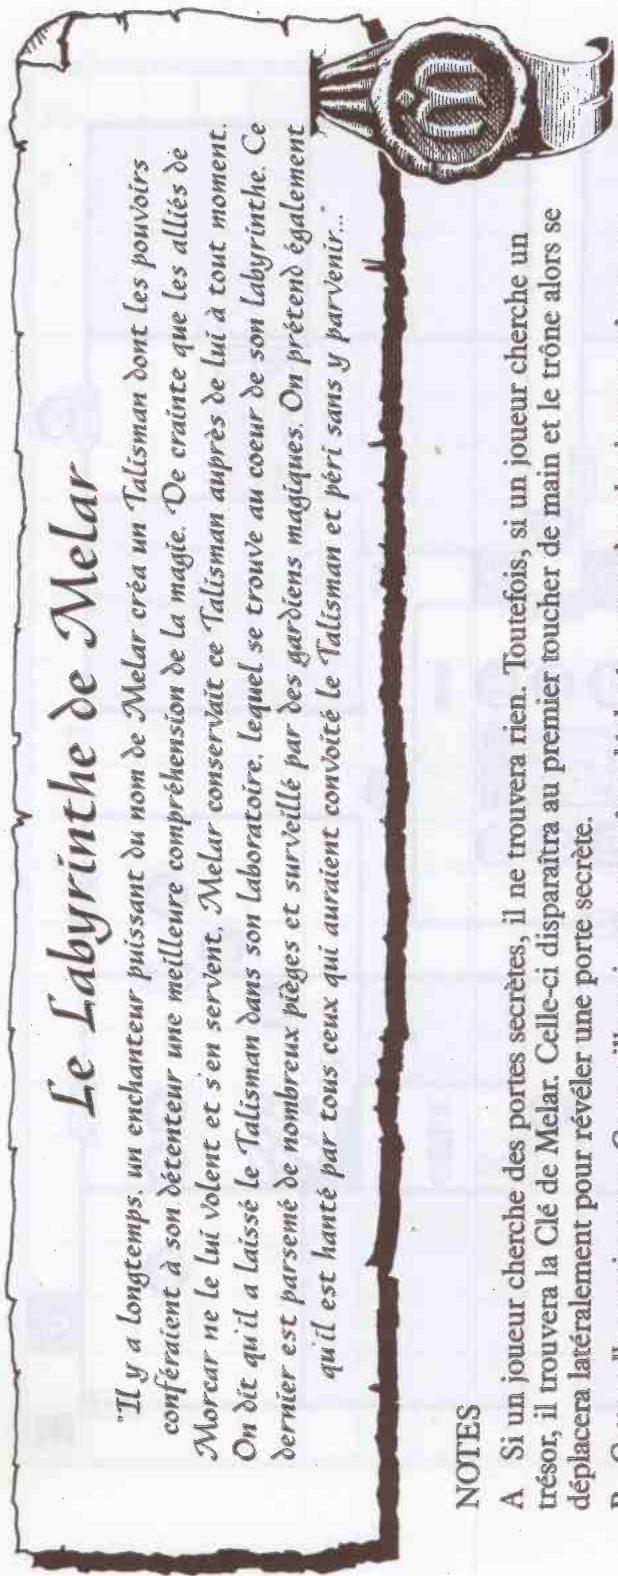 Le Labyrinthe de Melar
"Il y a longtemps, un enchanteur puissant du nom de Melar créa un Talisman dont les pouvoirs
conféraient à son détenteur une meilleure compréhension de la magie. De crainte que les alliés de
Morcar ne le lui volent et s'en servent, Melar conservait ce Talisman auprès de lui à tout moment.
On dit qu'il a laissé le Talisman dans son laboratoire, lequel se trouve au coeur de son labyrinthe. Ce
dernier est parsemé de nombreux pièges et surveillé par des gardiens magiques. On prétend également
qu'il est hanté par tous ceux qui auraient convoité le Talisman et péri sans y parvenir..."
NOTES
A Si un joueur cherche des portes secrètes, il ne trouvera rien. Toutefois, si un joueur cherche un
trésor, il trouvera la Clé de Melar. Celle-ci disparaîtra au premier toucher de main et le trône alors se
déplacera latéralement pour révéler une porte secrète.